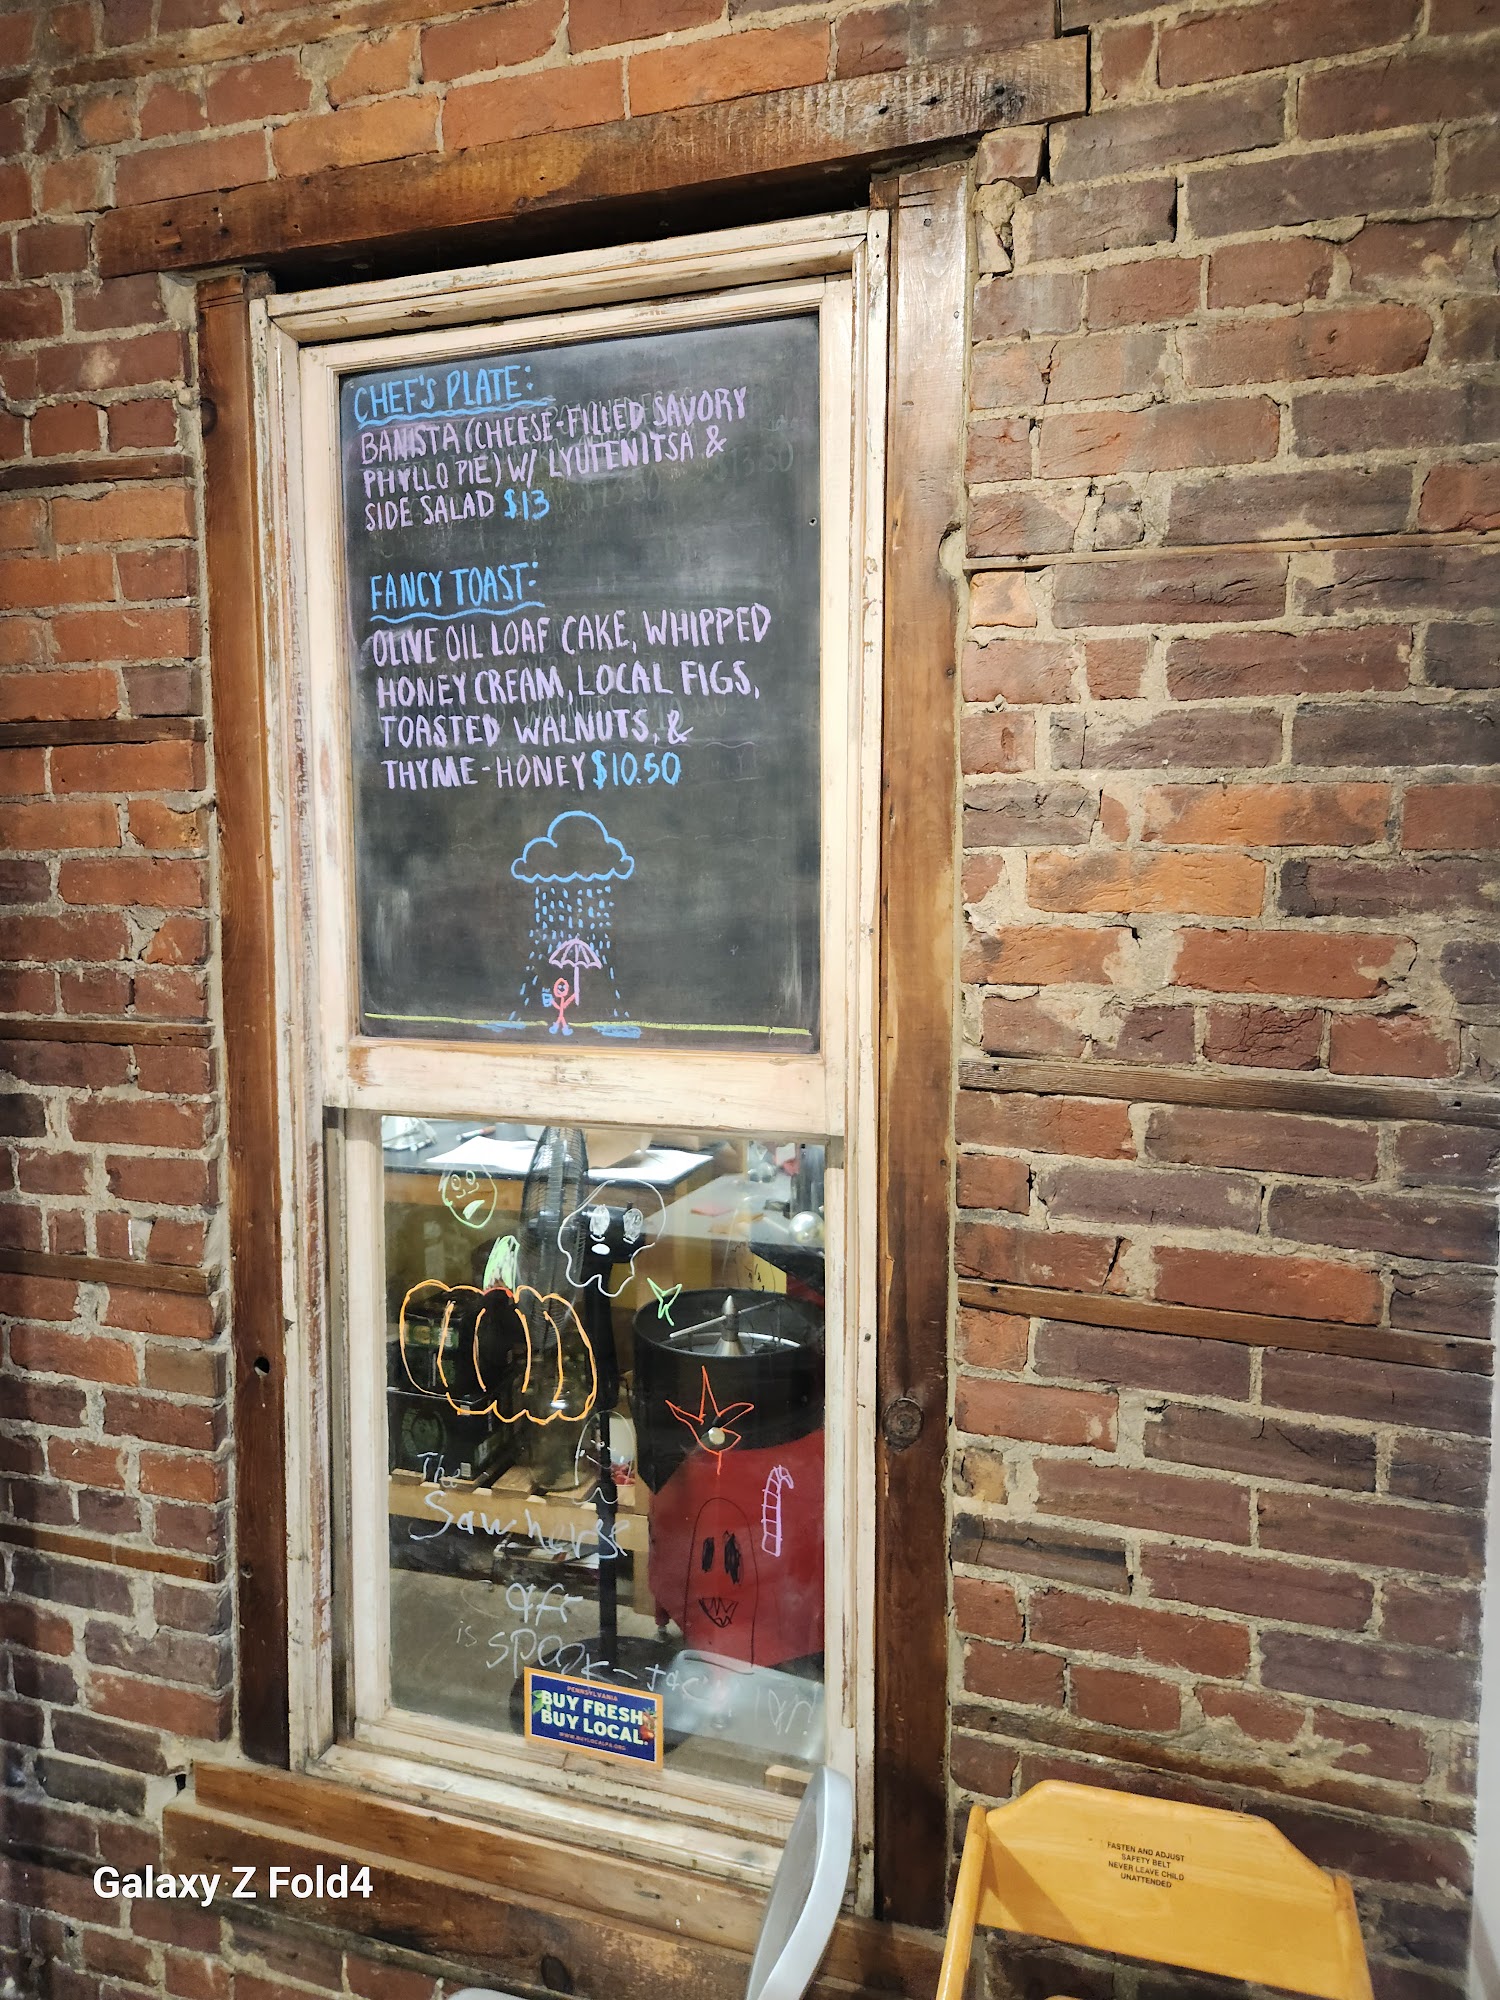 CHEF'S PLATE:
BANISTA (CHEESE-FILLED SAVORY
PHYLLO PIE) W/ LYUTENITSA &
SIDE SALAD $13
FANCY TOAST:
OLIVE OIL LOAF CAKE, WHIPPED
HONEY CREAM, LOCAL FIGS,
TOASTED WALNUTS, &
THYME-HONEY $10.50
The
Sawhorse
is spook-tac
PENNSYLVANIA
BUY FRESH
BUY LOCAL.
WWW.BUYLOCALPA.ORG
FASTEN AND ADJUST
SAFETY BELT
NEVER LEAVE CHILD
UNATTENDED
Galaxy Z Fold4